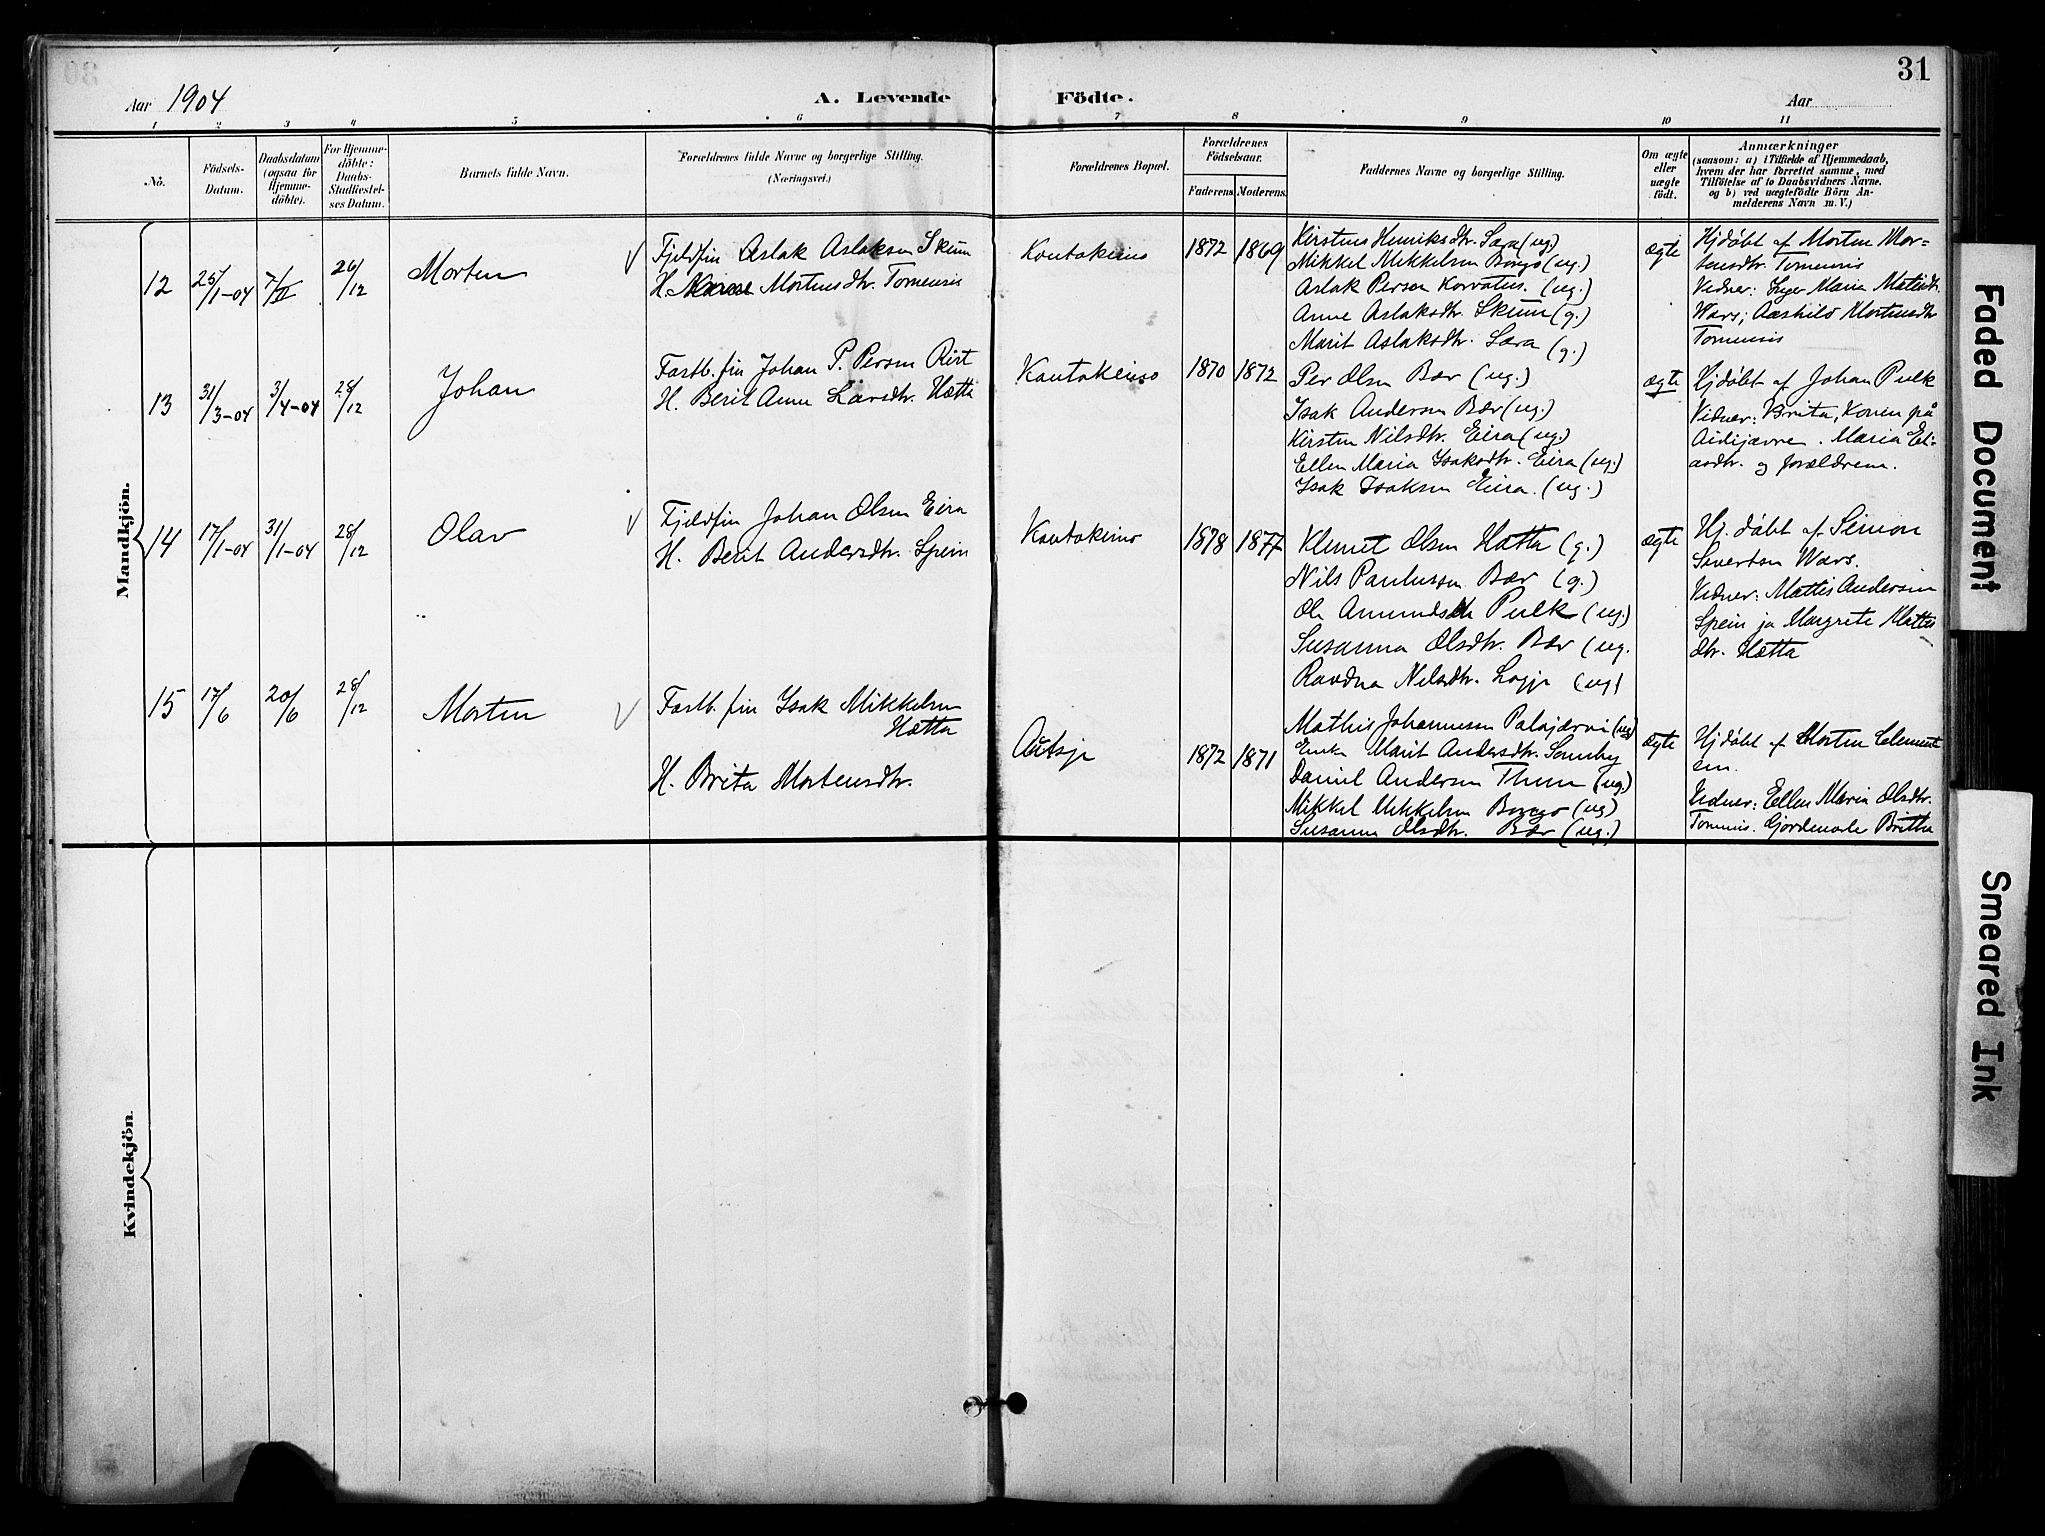 31
Aar 1904
A. Levende Födte.
Aar
1 2 3 4 5 6 7 8 9 10 11
No.
Födsels-
Datum.
Daabsdatum
(ogsaa for
Hjemme-
döbte).
For Hjemme-
döbte:
Daabs-
Stadfæstel-
ses Datum.
Barnets fulde Navn.
Forældrenes fulde Navne og borgerlige Stilling.
(Næringsvei.)
Forældrenes Bopæl.
Forældrenes
Födselsaar.
Faderens Moderens
Faddernes Navne og borgerlige Stilling.
Om ægte
eller
uægte
födt.
Anmærkninger
(saasom: a) i Tilfælde af Hjemmedaab,
hvem der har forrettet samme, med
Tilföielse af to Daabsvidners Navne,
og b) ved uægtefödte Börn An-
melderens Navn m. V.)
Mandkjön.
12
25/1-04
7/II
26/12
Morten
Fjeldfin Aslak Aslaksen Skum
H. Mortensdtr. Tornensis
Kautokeino
1872
1869
Kirstine Henriksdtr. Sara (ug.)
Mikkel Mikkelsen Bongo (ug.)
Aslak Persen Korvatus. (ug.)
Anne Aslaksdtr. Skum (g.)
Marit Aslaksdtr. Sara (g.)
ægte
Hjdøbt af Morten Mor-
tensdtr. Tornensis
Vidner: Inger Maria Matisdtr.
Wars; Aashild Mortensdtr
Tornensis
13
31/3-04
3/4-04
28/12
Johan
Fastb. fin Johan P. Persen
H. Berit Anne Larsdtr. Hætta
Kautokeino
1870
1872
Per Olsen Bær (ug.)
Isak Andersen Bær (ug.)
Kirsten Nilsdtr. Eira (ug.)
Ellen Maria Isaksdtr. Eira (ug.)
Isak Isaksen Eira. (ug.)
ægte
Hjdøbt af Johan Pulk
Vidner: Brita, Konen på
Aidijavre. Maria El-
asdtr. og forældrene.
14
17/1-04
31/1-04
28/12
Olav
Fjeldfin Johan Olsen Eira
H. Berit Andersdtr. Spein
Kautokeino
1878
1877
Klemet Olsen Hætta (g.)
Nils Paulussen Bær (g.)
Ole Amundsen Pulk (ug.)
Susanna Olsdtr. Bær (ug.
Ravdna Nilsdtr. Logje (ug)
ægte
Hj. døbt af Simon
Sivertsen Wars.
Vidner: Mattis Andersen
Spein ja Margrete Mattis
dtr. Hætta
15
17/6
20/6
28/12
Morten
Fastb. fin Isak Mikkelsen
Hætta
H. Brita Mortensdtr.
Autsje
1872
1871
Mathis Johannesen Palojærvi (ug)
Enke Marit Andersdtr. Somby
Daniel Andersen Thuri (ug.)
Mikkel Mikkelsen Bongo (ug)
Susanna Olsdtr. Bær (ug.)
ægte
Hjdøbt af Morten Clement
sen.
Vidner: Ellen Maria Olsdtr.
Tornensis. Gjordemode Britha
Kvindekjön.
Faded Document
Smeared Ink